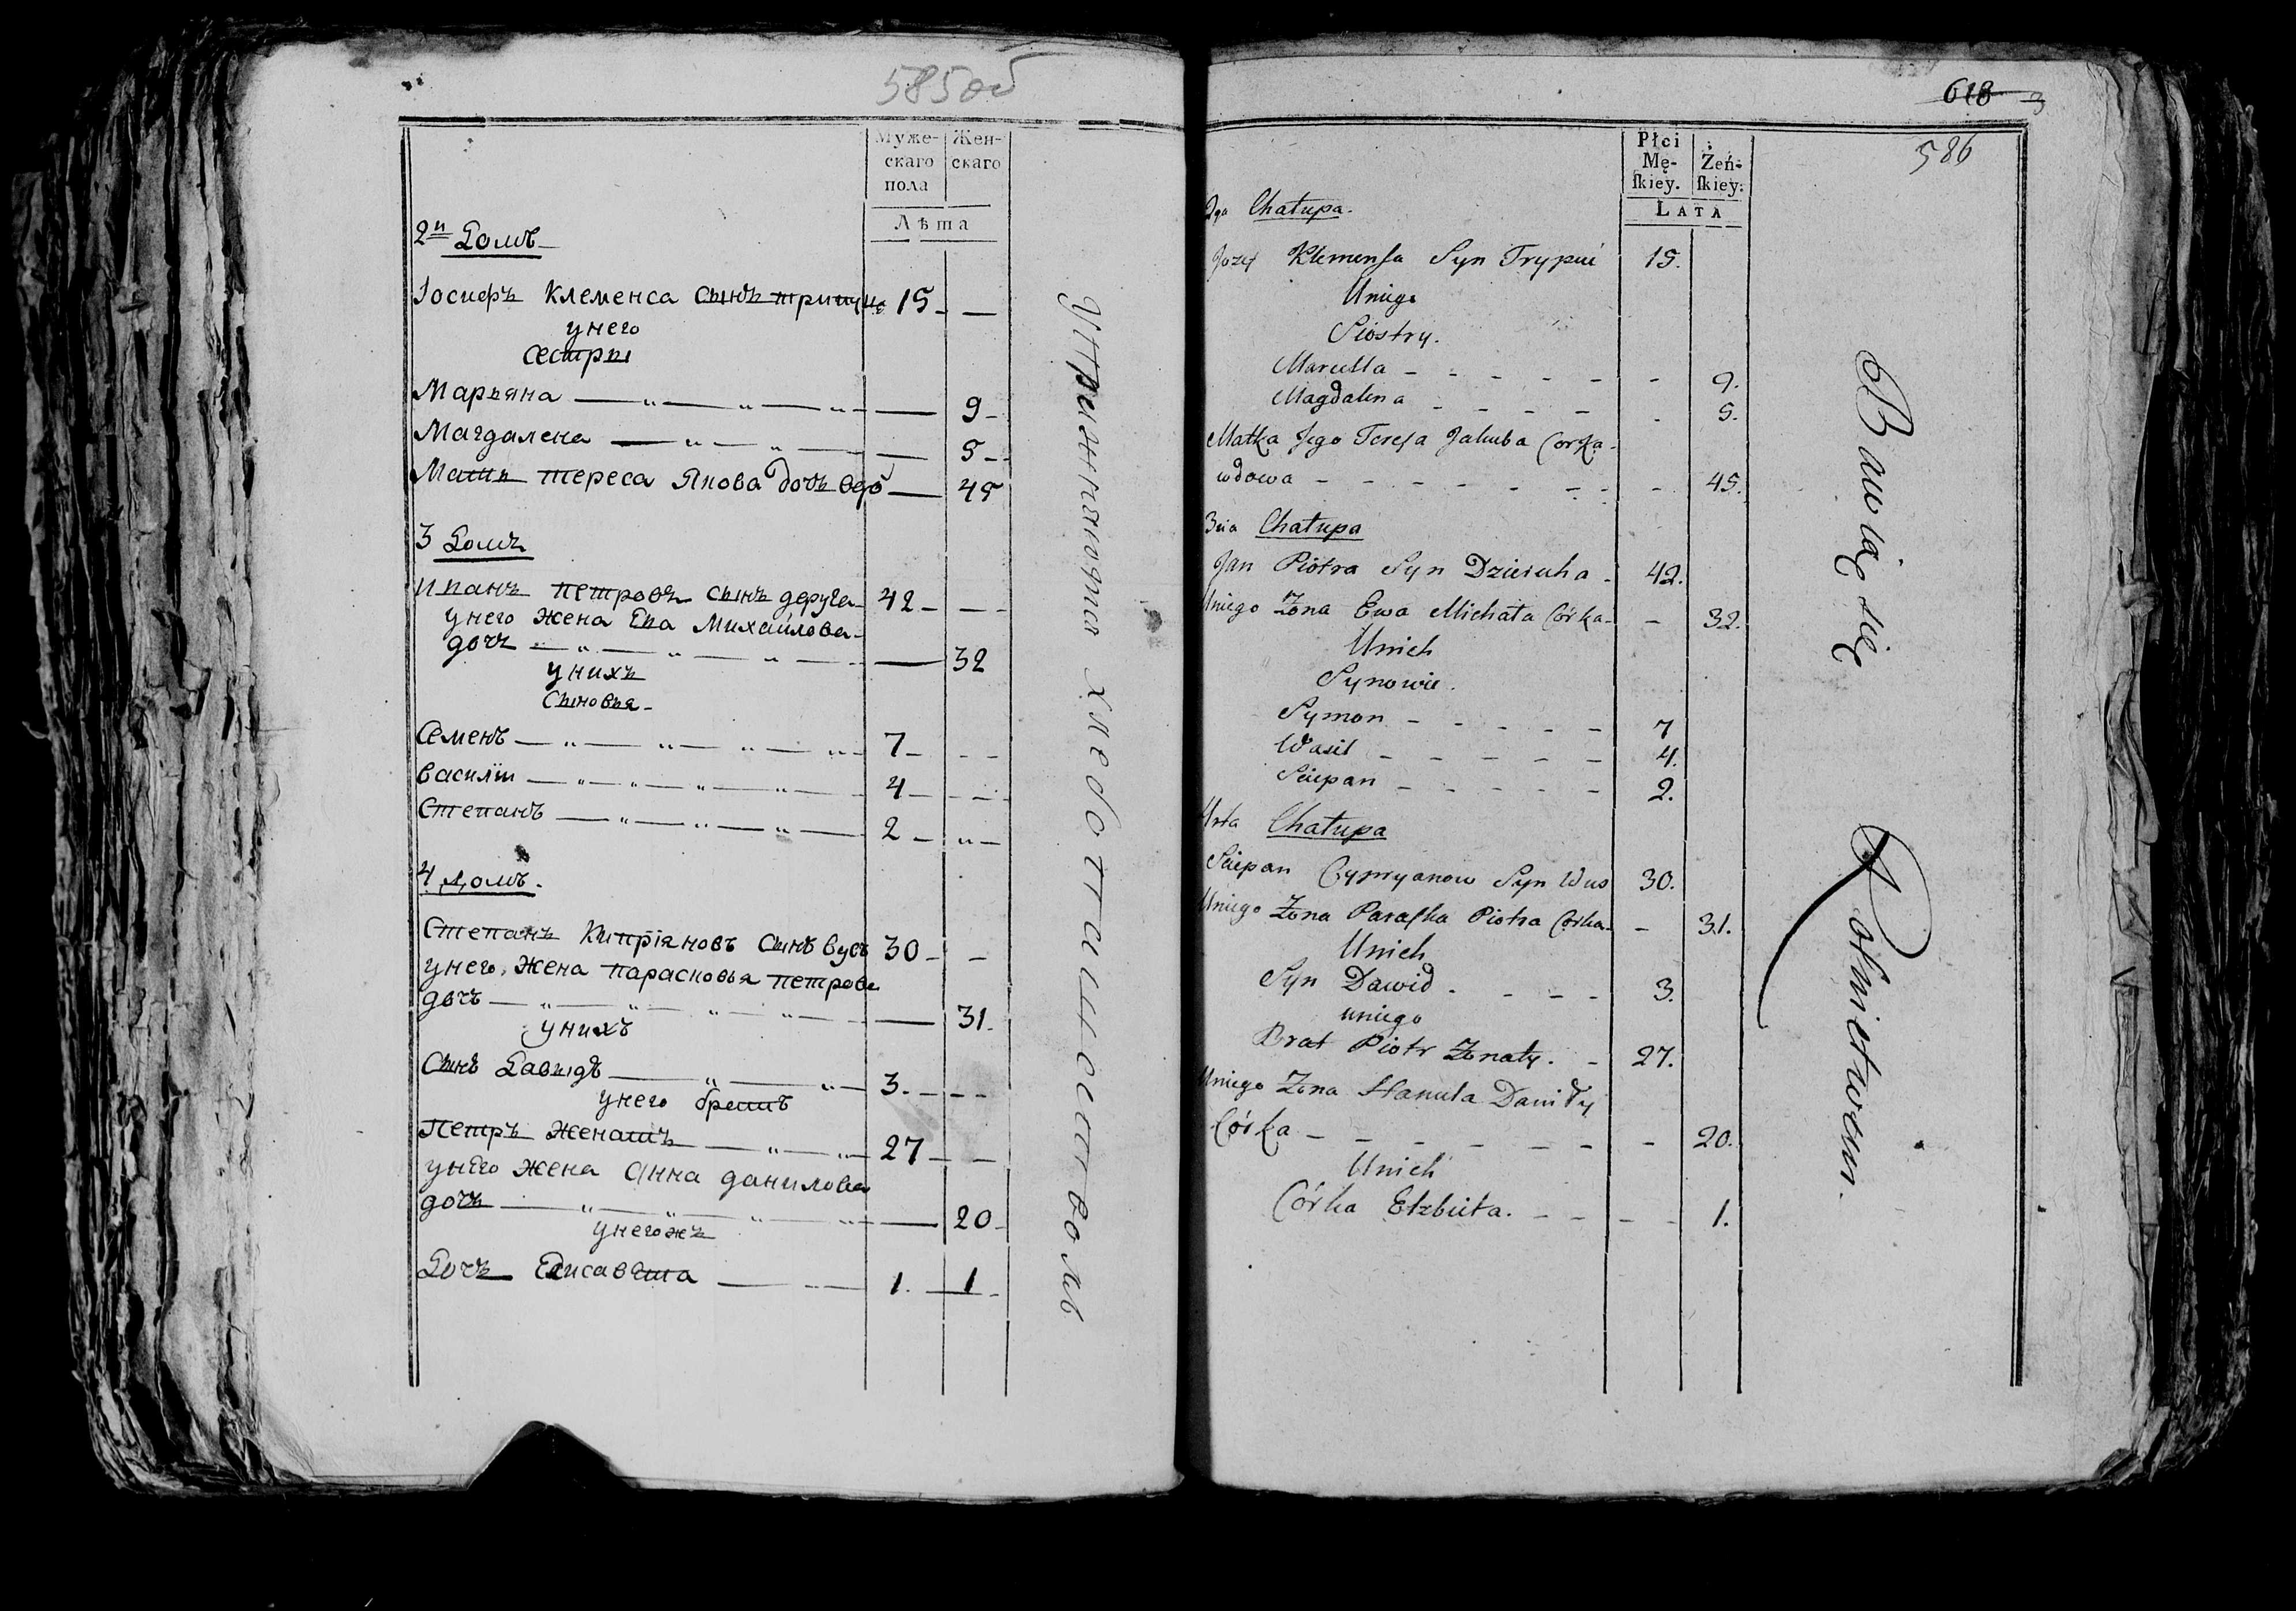 585об
Муже-
скаго
пола
Жен-
скаго
Лѣта
2й Домъ
Іосифъ Клеменса сынъ 15
у него
сестры
Марьяна 9
Магдалена 5
Мать Тереса Янова дочь вдо 45
3 Домъ
Иванъ Петровъ сынъ деруга 42
у него жена Ева Михайлова
дочь 32
у нихъ
сыновья
Семенъ 7
Василій 4
Степанъ 2
4 домъ.
Степанъ Кипріяновъ сынъ Вусъ 30
у него жена Парасковья Петрова
дочь 31.
у нихъ
Сынъ Давыдъ 3.
у него братъ
Петръ женатъ 27
у него жена Анна Данилова
дочь 20
у него жъ
Дочь Елисавета 1. 1
упражняются хлебопашествомъ
618
586
Płci
Mę-
ſkiey.
Żeń-
ſkiey.
LATA
2ga Chałupa.
Jozef Klemensa Syn Trypuć 15.
Uniego
Siostry.
Maryella 9.
Magdalena 5.
Matka Jego Teresa Jakuba Corka
wdowa 45.
3cia Chałupa
Jan Piotra Syn Dzieruha 42.
Uniego Żona Ewa Michała Córka 32.
Unich
Synowie.
Symon 7
Wasil 4.
Sciepan 2.
4rta Chałupa
Sciepan Cypryanow Syn Wus 30.
Uniego Żona Paraska Piotra Córka 31.
Unich
Syn Dawid 3.
uniego
Brat Piotr Żonaty. 27.
Uniego Żona Hanula Daniły
Córka 20.
Unich
Córka Elzbieta. 1.
Bawią się Rolnictwem.